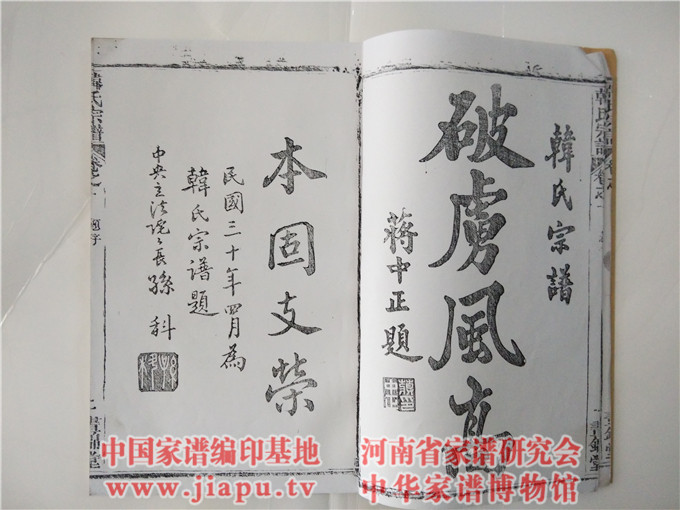 韓氏宗譜
破虜風直
蔣中正題
本固支榮
民國三十年四月為
韓氏宗譜題
中央立法院院長孫科
韓氏宗譜
中国家谱编印基地
www.jiapu.tv
河南省家谱研究会
中华家谱博物馆